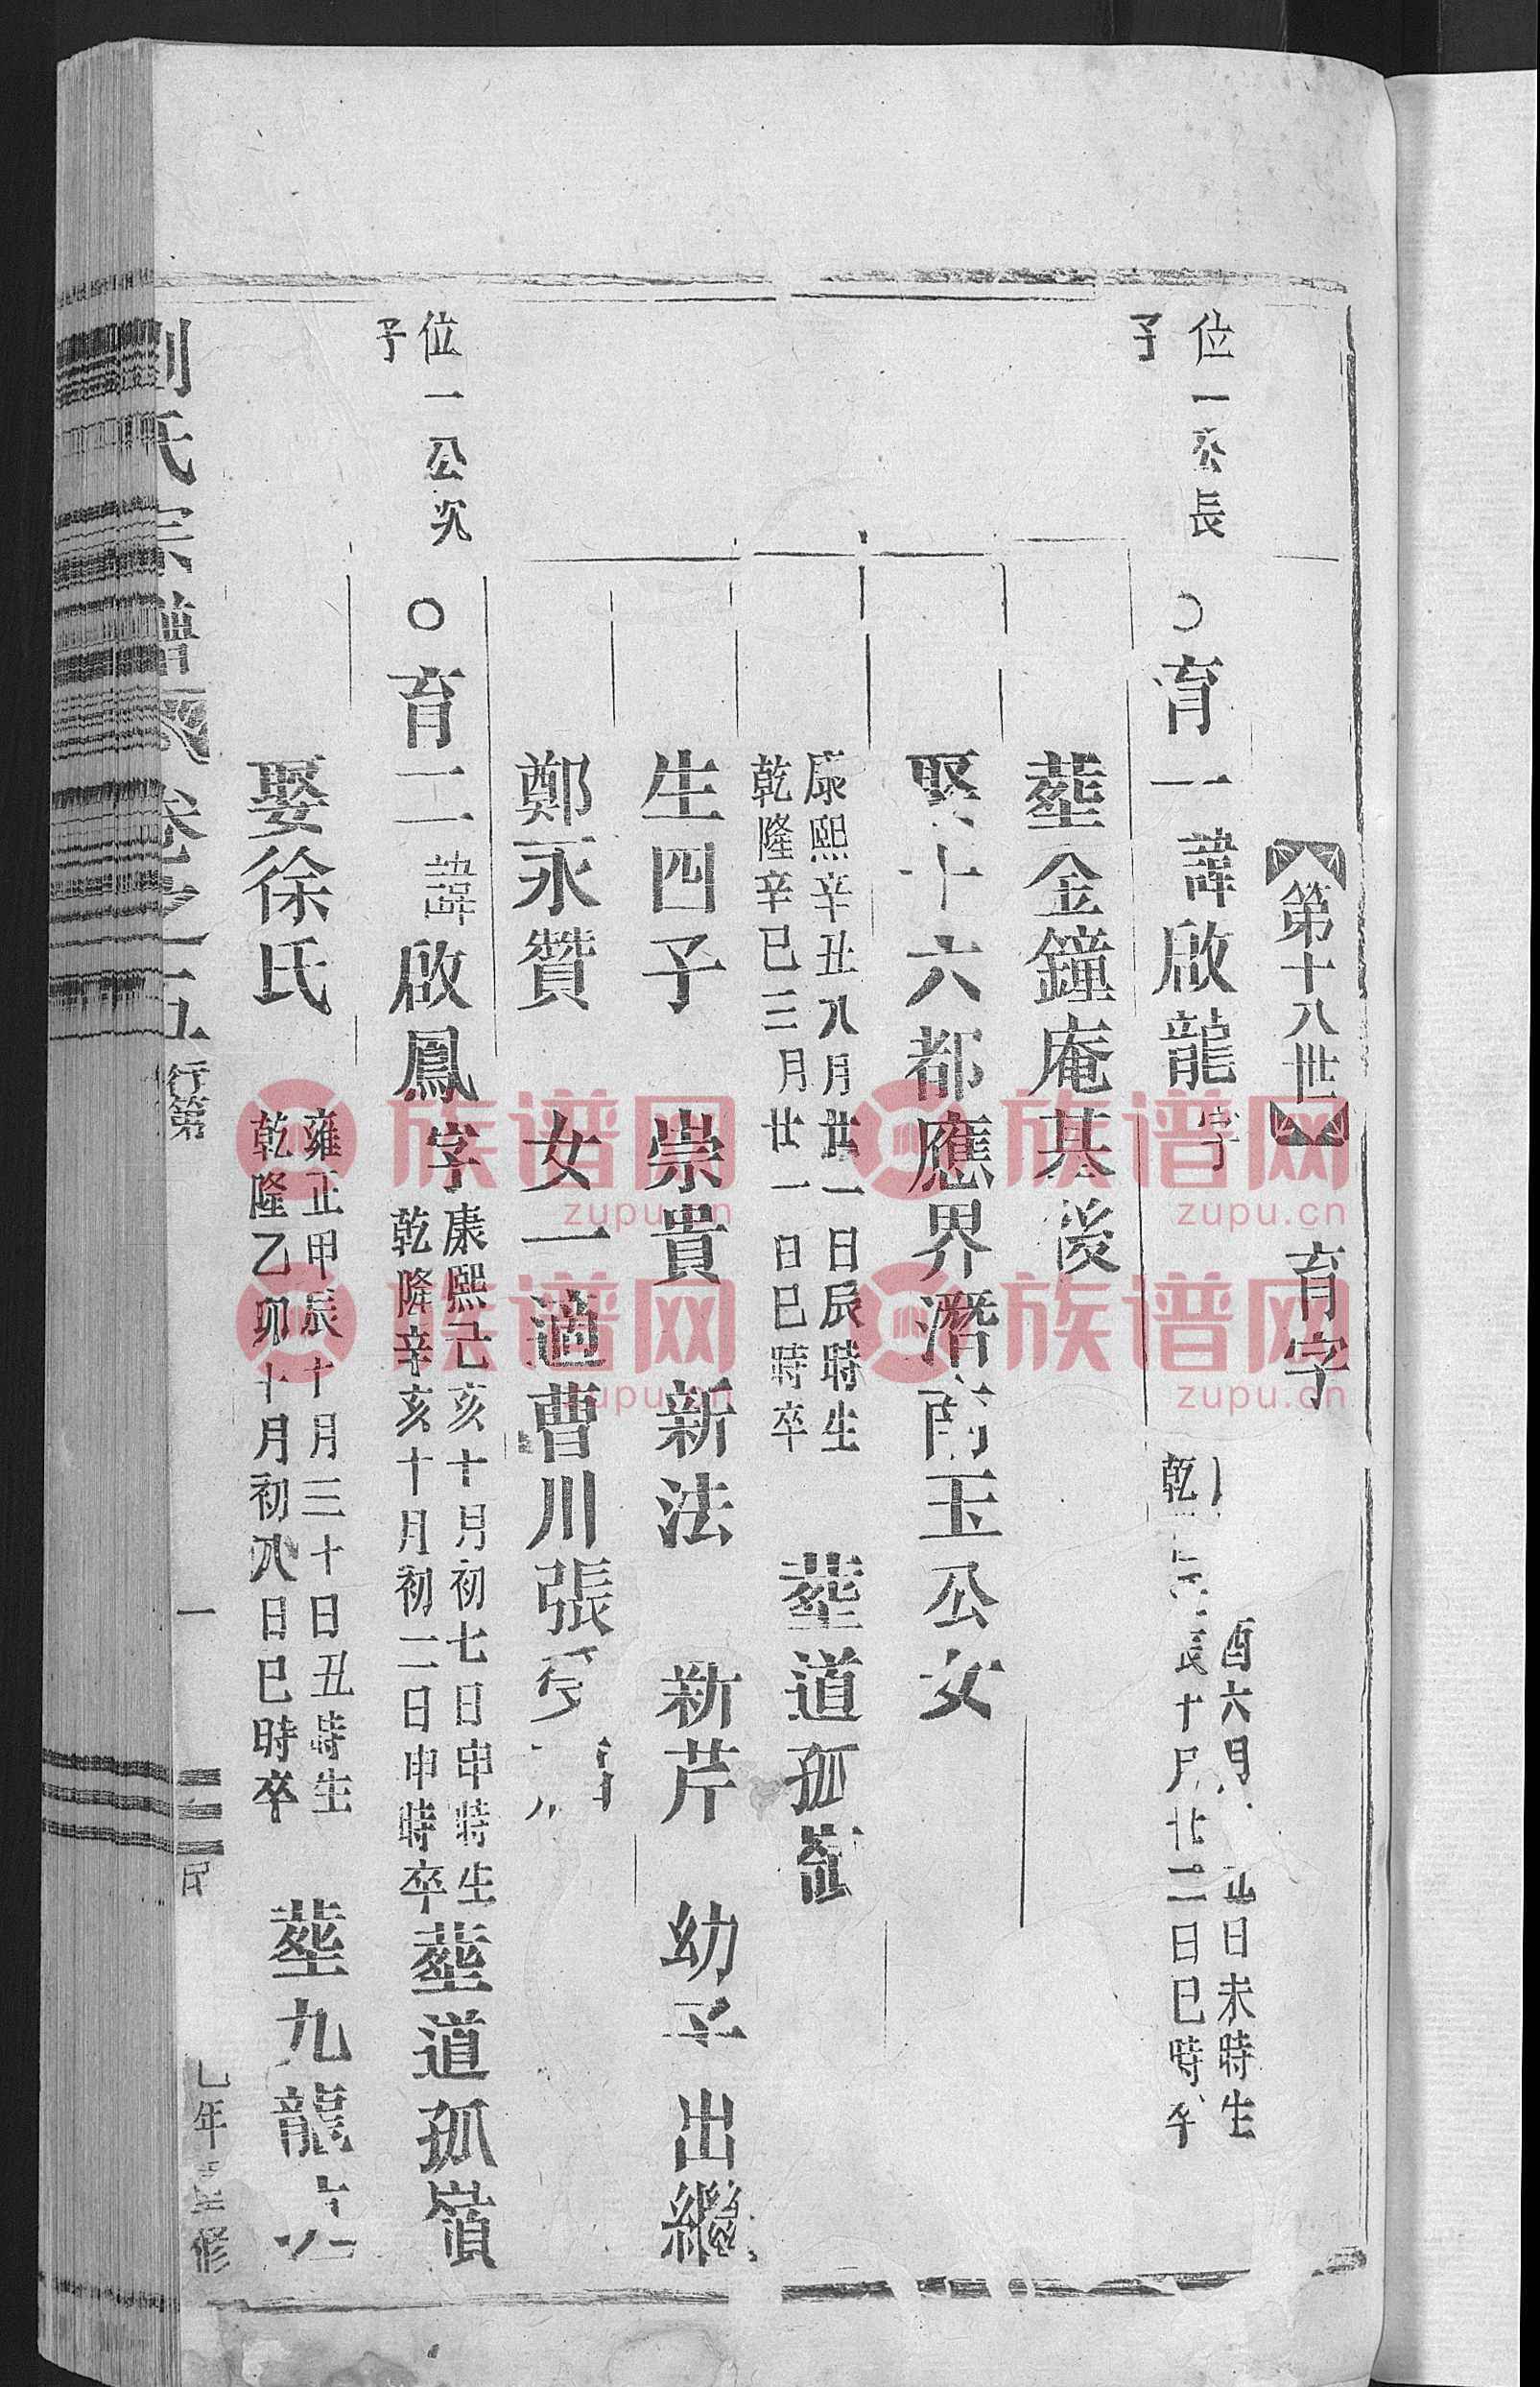 第十八世 育字
位一公長子
○育一諱啟龍字
酉六月 日未時生
乾 辰十月廿二日巳時卒
葬金鐘庵基後
娶十六都應界潛南玉公女
康熙辛丑八月廿一日辰時生
乾隆辛巳三月廿一日巳時卒
葬道孤嶺
生四子 崇貴 新法 新芹 幼子出繼
鄭永贊 女一適曹川張
位一公次子
○育二諱啟鳳字
康熙己亥十月初七日申時生
乾隆辛亥十月初二日申時卒
葬道孤嶺
娶徐氏
雍正甲辰十月三十日丑時生
乾隆乙卯十月初八日巳時卒
葬九龍
劉氏宗譜 卷之十五 行第 一 民 年重修
族谱网
zupu.cn
族谱网
zupu.cn
族谱网
zupu.cn
族谱网
zupu.cn